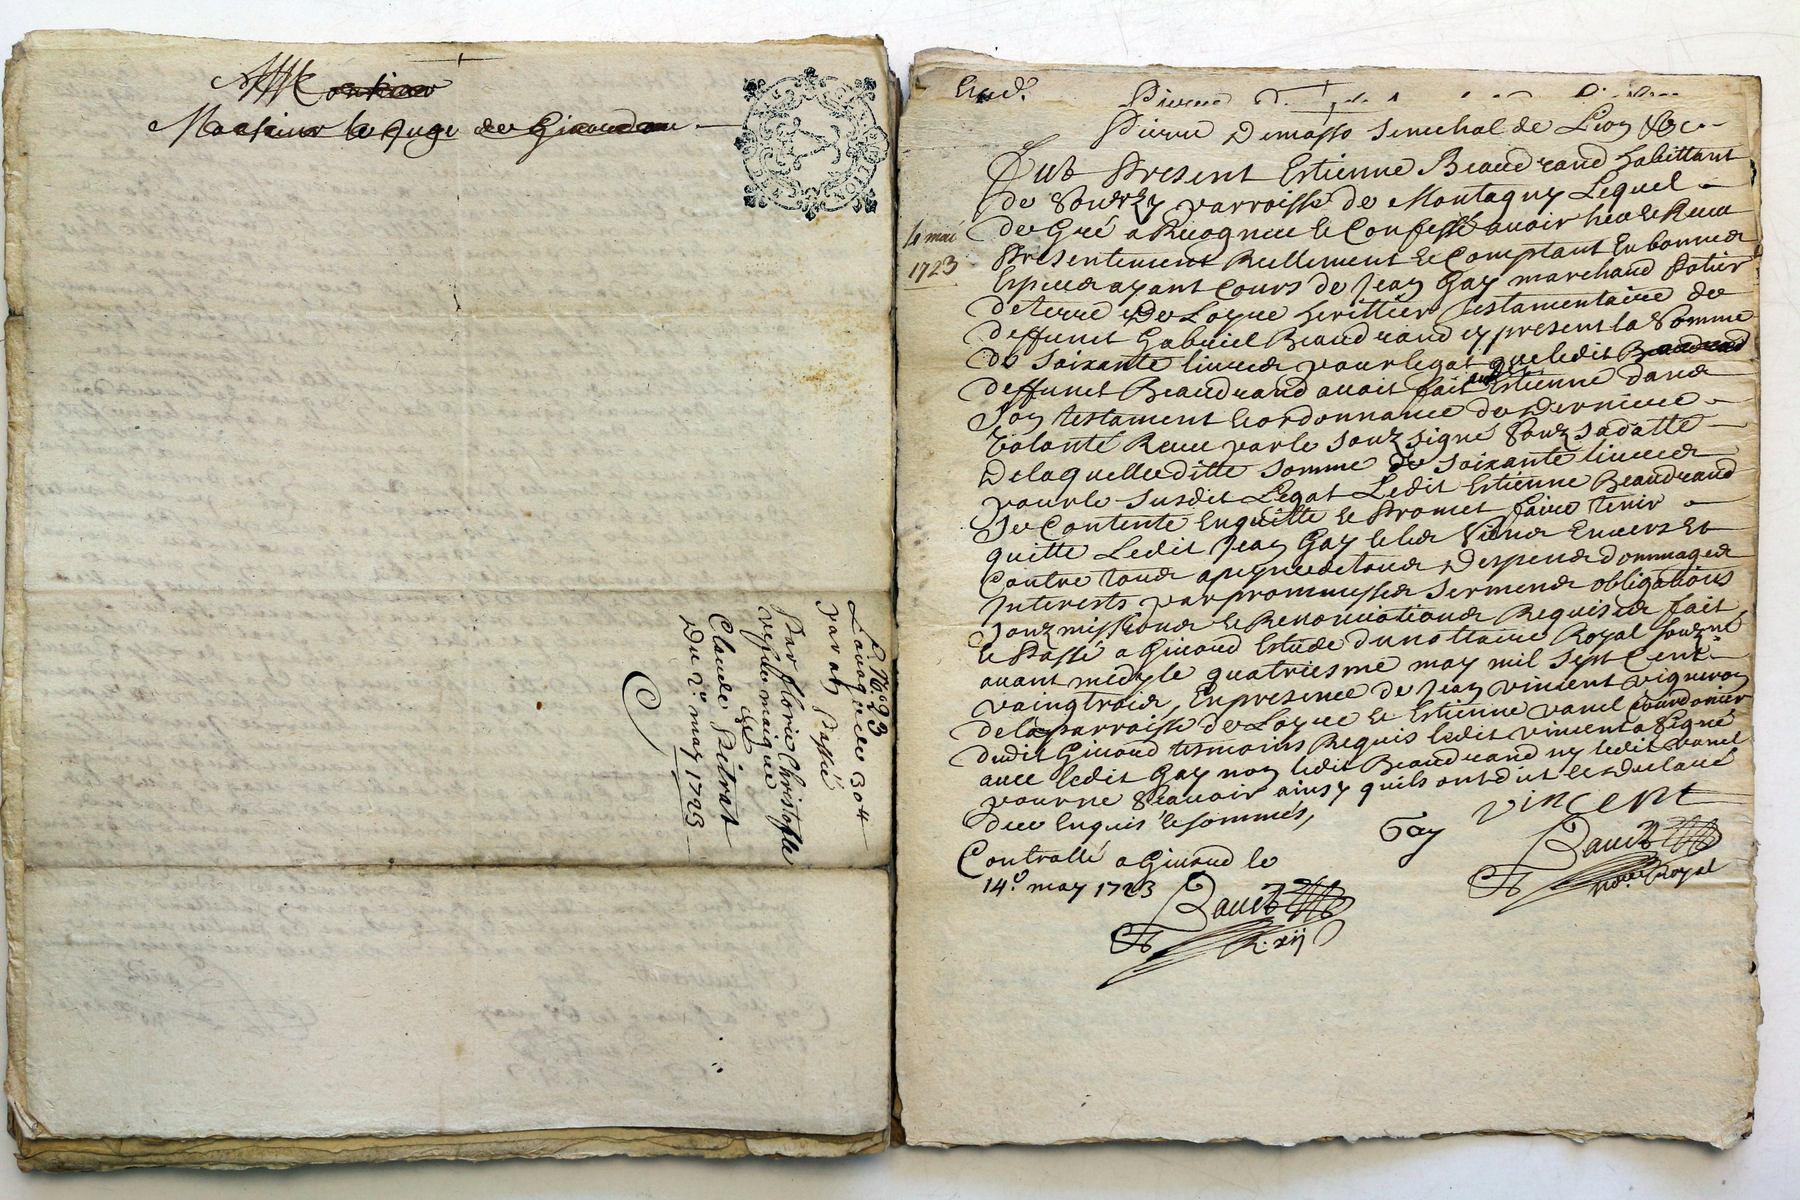 Monsieur
Monsieur le Juge de Giraudan
L. 1693
par au Passé
Par fflorie Christofle
vefve maigue
Claude Pitrat
Du 2e. may 1723
Exped.
Pierre
Pierre Demasso Senechal de Lion &c.
4 mai
1723
Fut Present Estienne Beaudrand habittant
de parroisse de Montagny Lequel
de Gré a Recogneu et Confessé avoir heu et Receu
Presentement Reellement et Comptant En bonnes
Especes ayant Cours de Jean Gay marchand Potier
de terre de Loyre heritier Testamentaire de
deffunct Gabriel Beaudrand cy present la Somme
de Soixante livres pour legat que ledit Beaudrand
deffunct Beaudrand avoit fait audit Estienne dans
Son testament et ordonnance de Derniere
volonté Receu par le Souz signé Souz sa datte
De laquelle ditte Somme de Soixante livres
pour le Susdit Legat Ledit Estienne Beaudrand
Se Contente En quitte et Promet faire tenir
quitte Ledit Jean Gay et les Siens Envers Et
Contre tous a peyne de tous Despens dommages
Interests par promesses Sermens obligations
Souzmissions et Renonciations Requises fait
et Passé a Givord Estude du nottaire Royal Souzné
avant midy le quatriesme may mil Sept Cent
vaingtrois, En presence de Jean vincent vigneron
de la parroisse de Loyre et Estienne vanel Courdonier
dudit Givord tesmoins Requis ledit vincent a Signé
avec ledit Gay non ledit Beaudrand ny ledit vanel
pour ne Scavoir ainsy quils ont dit et Declaré
de ce Enquis et Sommés,
Gay
vincent
no.re Royal
Controllé a Givord le
14e. may 1723
R. xij